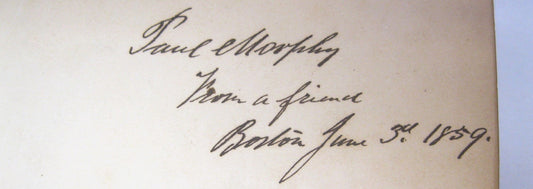 Paul Morphy
From a friend
Boston June 3d. 1859.